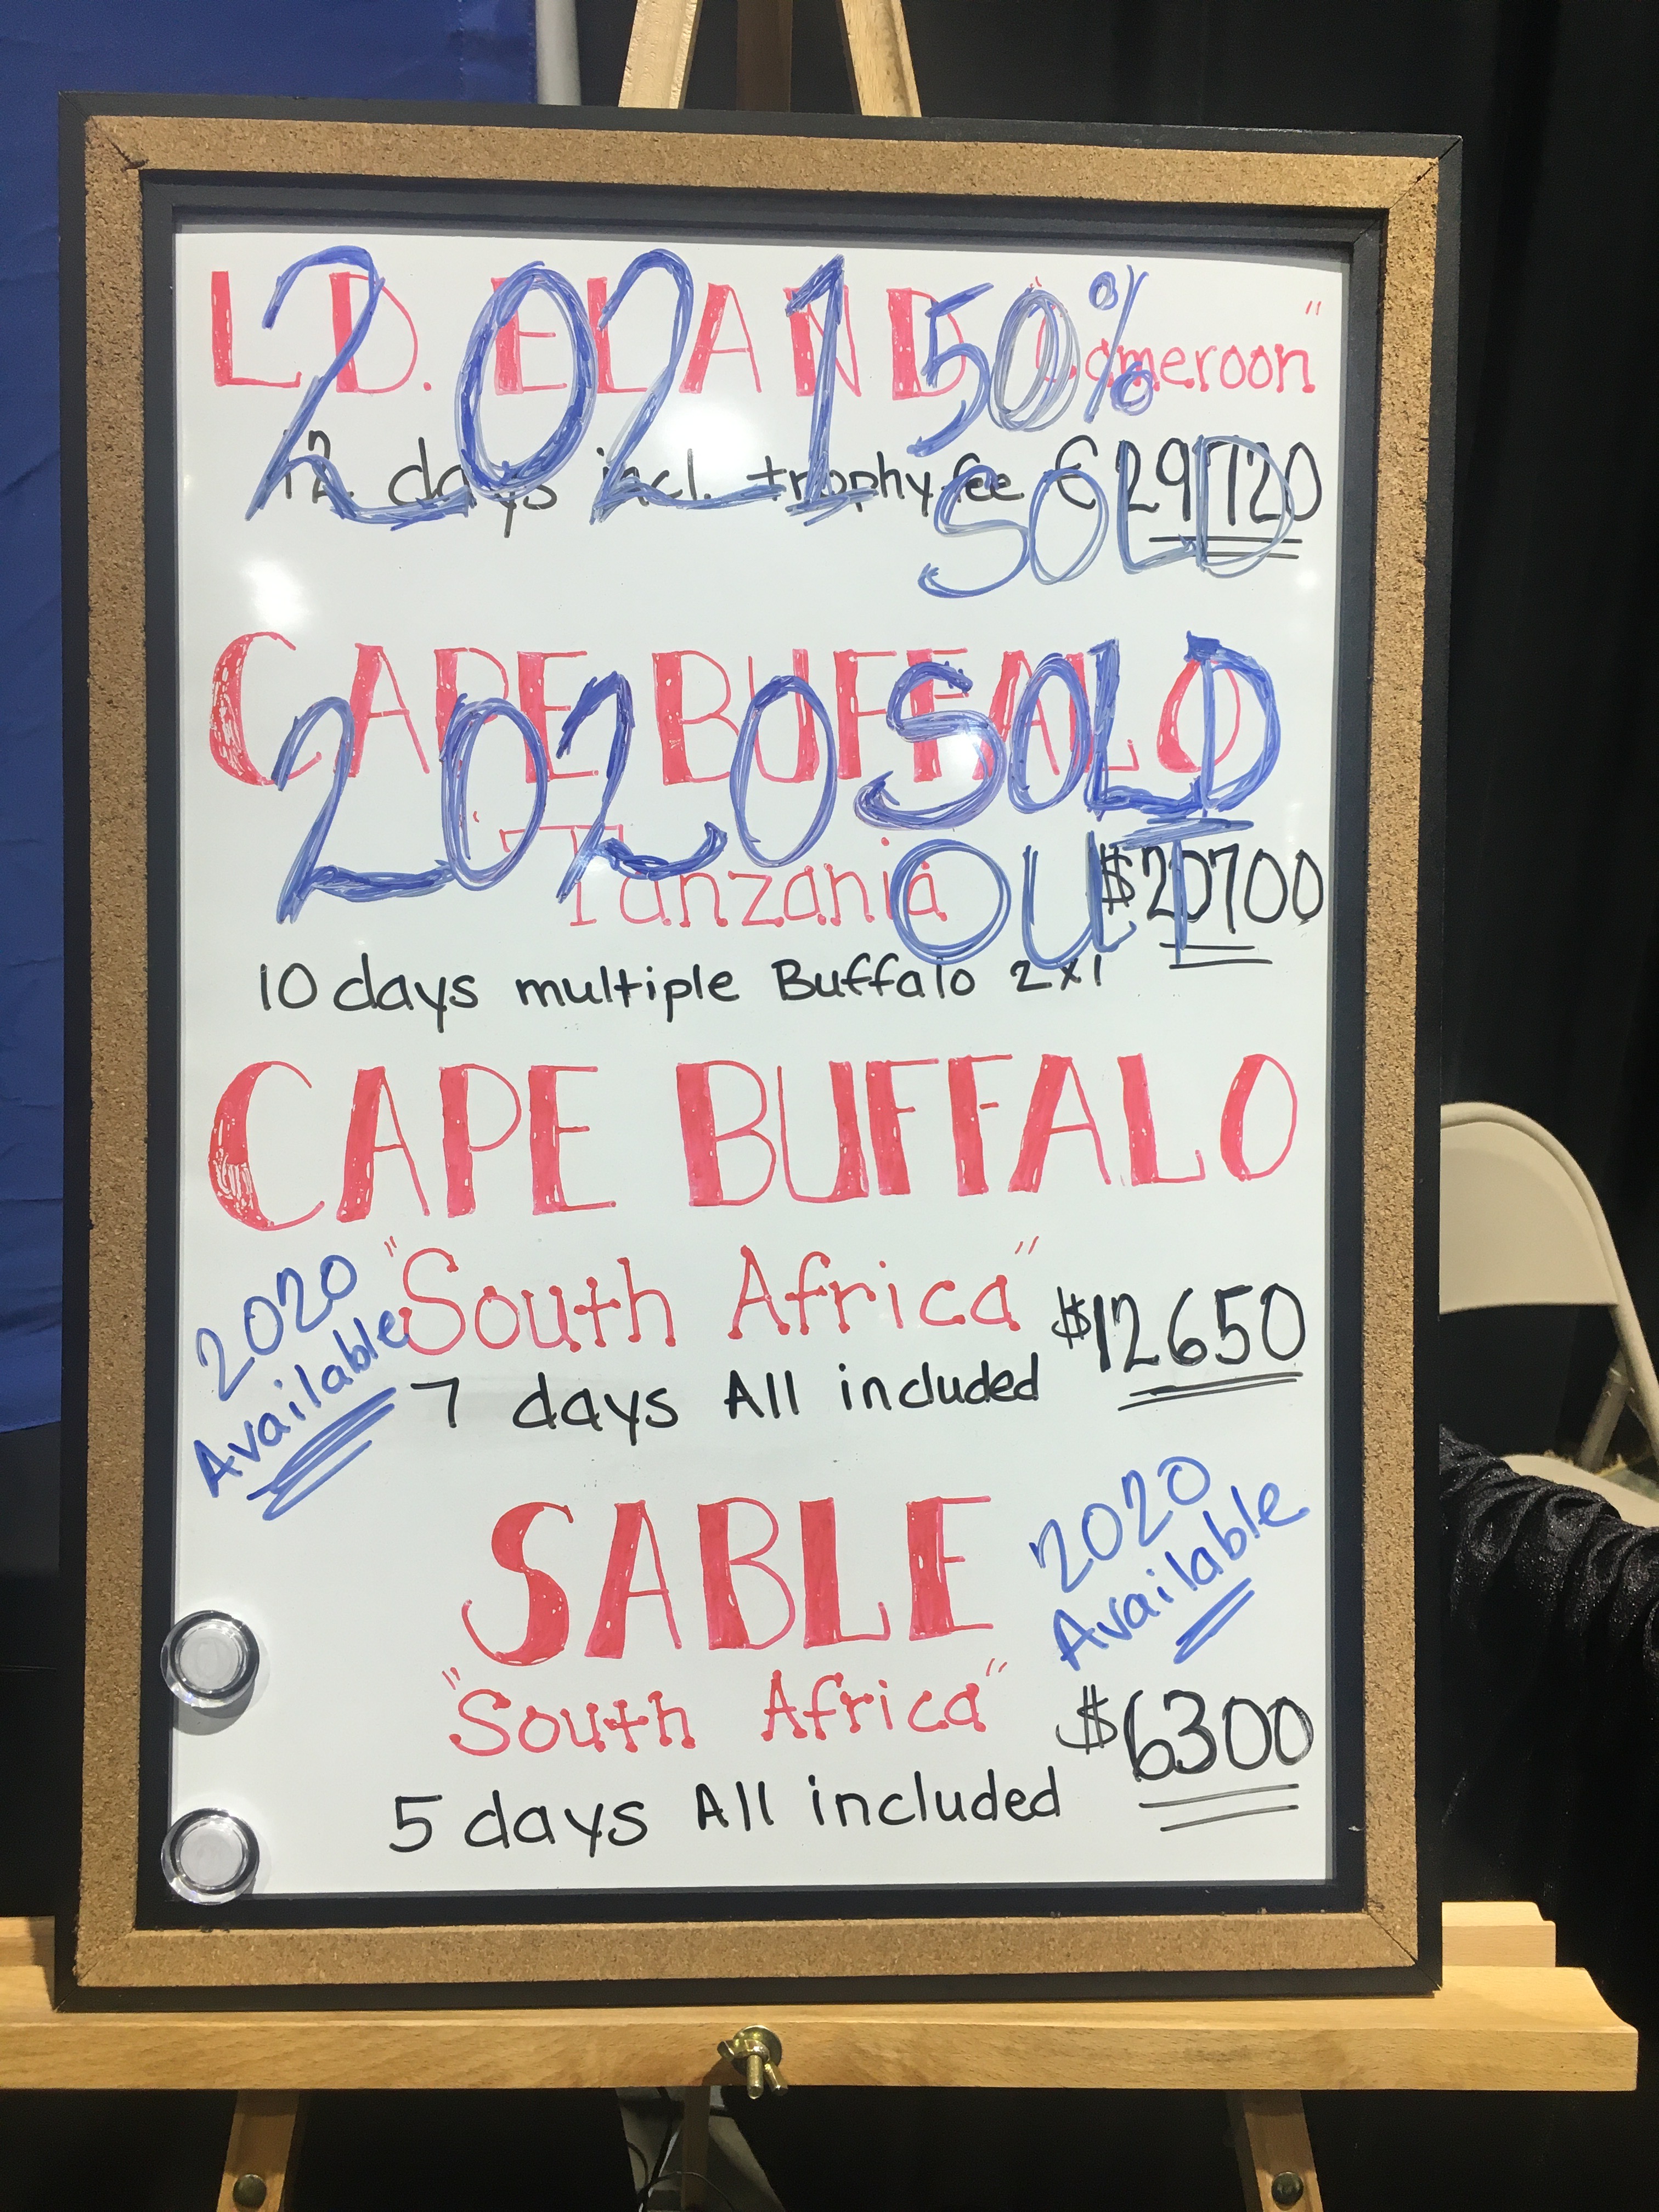 L.D. ELAND "Cameroon"
2021 50% SOLD
12 days incl. trophy fee € 29720
CAPE BUFFALO
2020 SOLD OUT
"Tanzania $20700
10 days multiple Buffalo 2x1
CAPE BUFFALO
"South Africa"
2020 Available
$12650
7 days All included
SABLE
2020 Available
"South Africa"
$6300
5 days All included